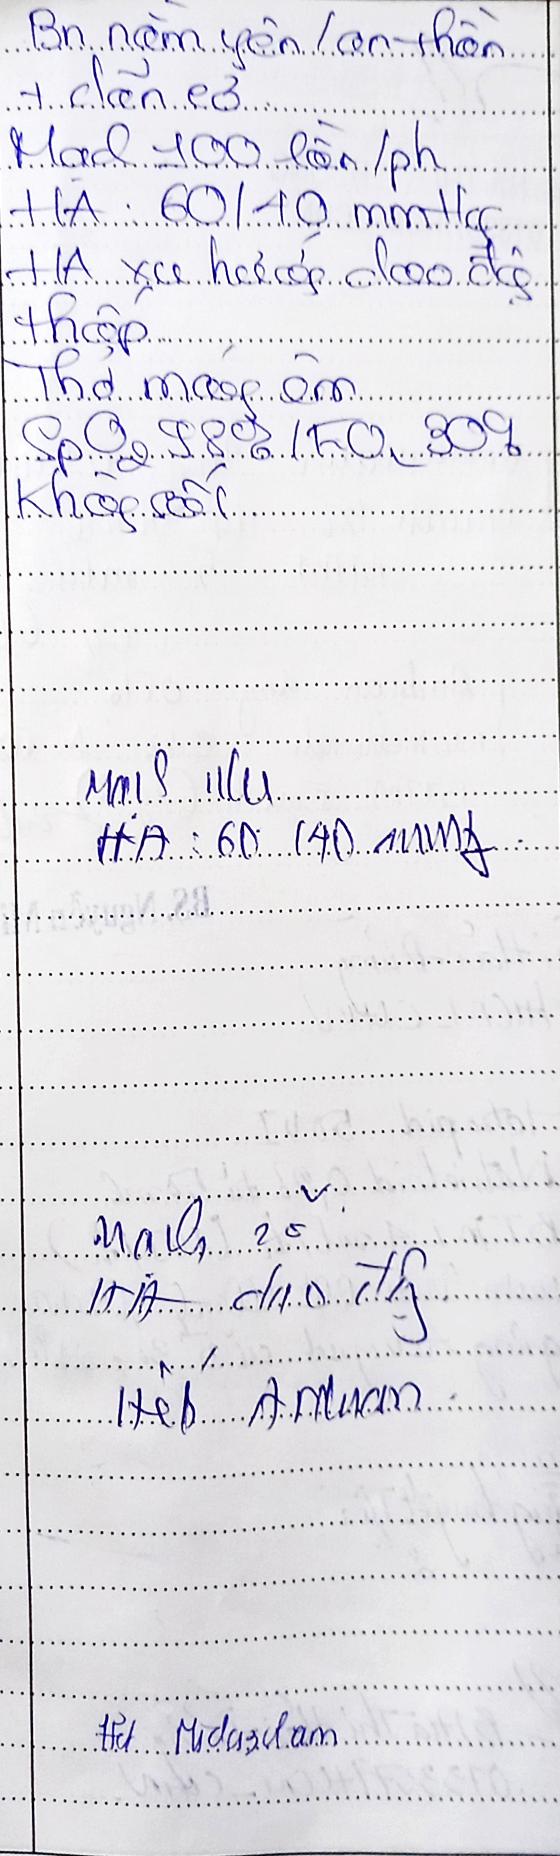 Bn nằm yên / an thần
+ dãn cơ
Mạch 100 lần/ph
HA : 60/40 mmHg
HA xu hướng dao động
thấp
Thở máy êm
SpO2 98% / FiO2 30%
Không sốt
HA : 60 / 40 mmHg
Mạch rõ
HA dao động
Hết
Midazolam